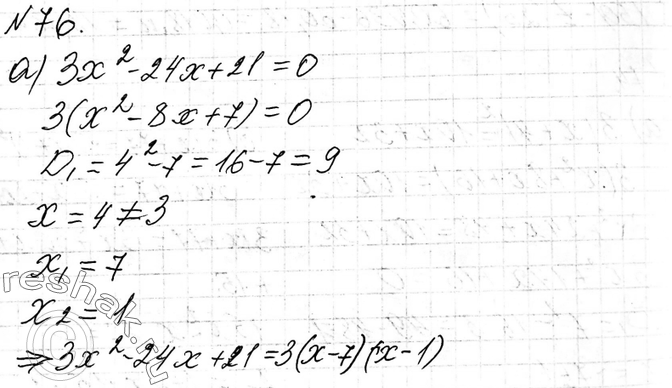 №76.
а) 3x² - 24x + 21 = 0
3(x² - 8x + 7) = 0
D₁ = 4² - 7 = 16 - 7 = 9
x = 4 ± 3
x₁ = 7
x₂ = 1
⇒ 3x² - 24x + 21 = 3(x - 7)(x - 1)
reshak.ru